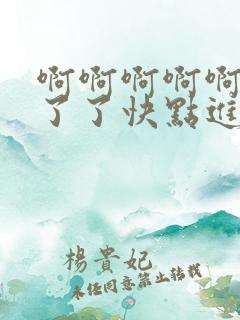 啊啊啊啊啊
了了快點進
楊貴妃
未经同意禁止转载